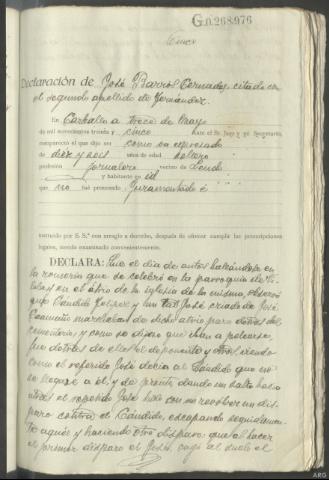 G.n.268.976
Cinco
Declaración de José Barros Bernadas, citado con
el segundo apellido de Fernández.
En Carballo a trece de Mayo
de mil novecientos treinta y cinco ante el Sr. Juez y su Secretario,
compareció el que dijo ser como va expresado
de diez y seis años de edad soltero
profesión jornalero vecino de
y habitante en id
que no fué procesado Juramentado é
instruido por S. S.ª con arreglo a derecho, después de ofrecer cumplir las prescripciones
legales, siendo examinado convenientemente.
DECLARA: Que el día de autos hallándose en
la romería que se celebró en la parroquia de
en el átrio de la iglesia de la misma, observó
que Cándido López y un tal José criado de José
Caamaño marchaban de dicho atrio para detrás del
cementerio; y como se dijera que iban a pelearse,
fué detrás de ellos el deponente y otros, viendo
como el referido José decía al Cándido que no
se llegase a él, y de pronto dando un salto hacia
atrás el repetido José hizo con un revolver un dis-
paro contra el Cándido, escapando seguidamen-
te aquél y haciendo otro disparo: que al hacer
el primer disparo el José, cayó al suelo el
ARG